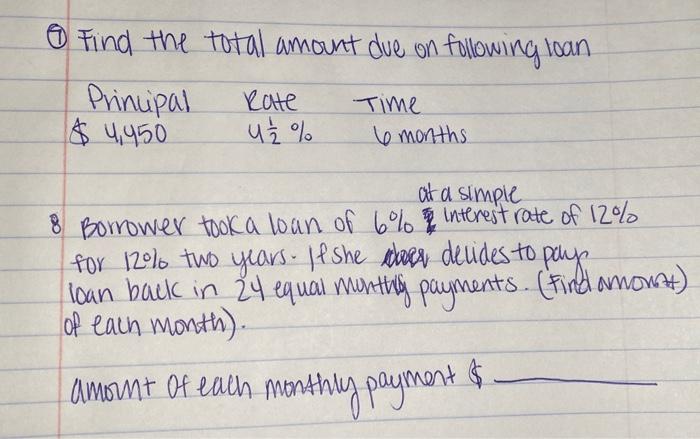 ⑦ Find the total amount due on following loan
Principal Rate Time
$ 4,450 4½ % 6 months
at a simple
8 Borrower took a loan of 6% interest rate of 12%
for 12% two years. If she decides to pay
loan back in 24 equal monthly payments. (Find amount)
of each month).
amount of each monthly payment $